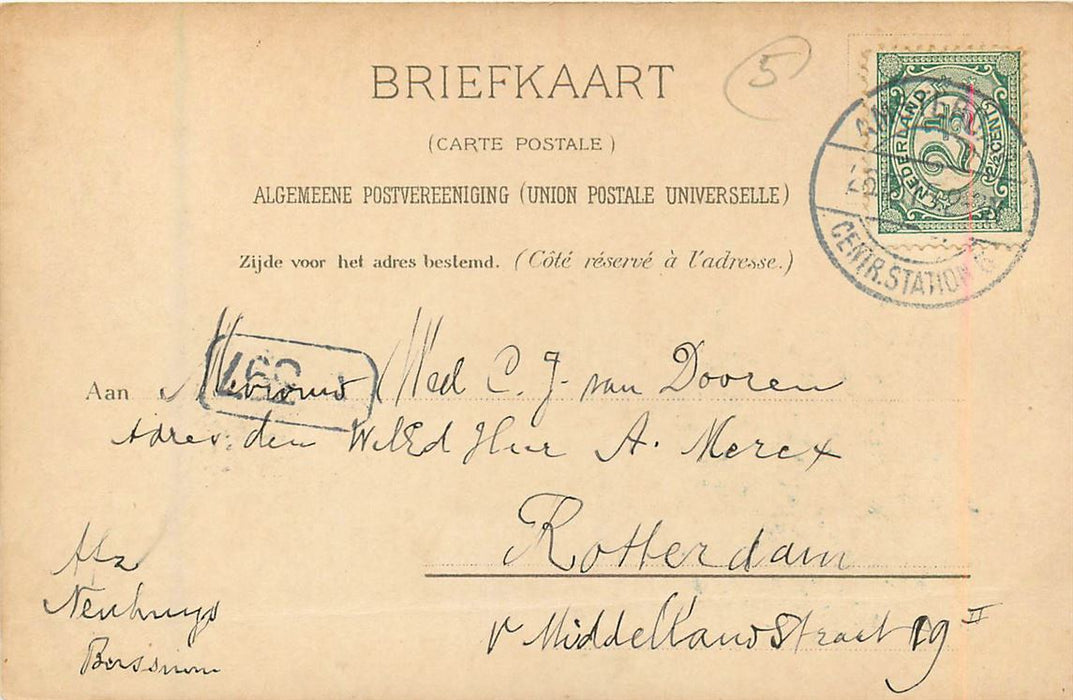 5
BRIEFKAART
(CARTE POSTALE)
ALGEMEENE POSTVEREENIGING (UNION POSTALE UNIVERSELLE)
Zijde voor het adres bestemd. (Côté réservé à l'adresse.)
NEDERLAND
2½
2½ CENT
CENTR.STATION 6
Aan Mevrouw Wed C. J. van Dooren
Adres: den WelEd Heer A. Mercx
Rotterdam
v Middellandstraat 19 II
Afz
Neuhuys
Bussum